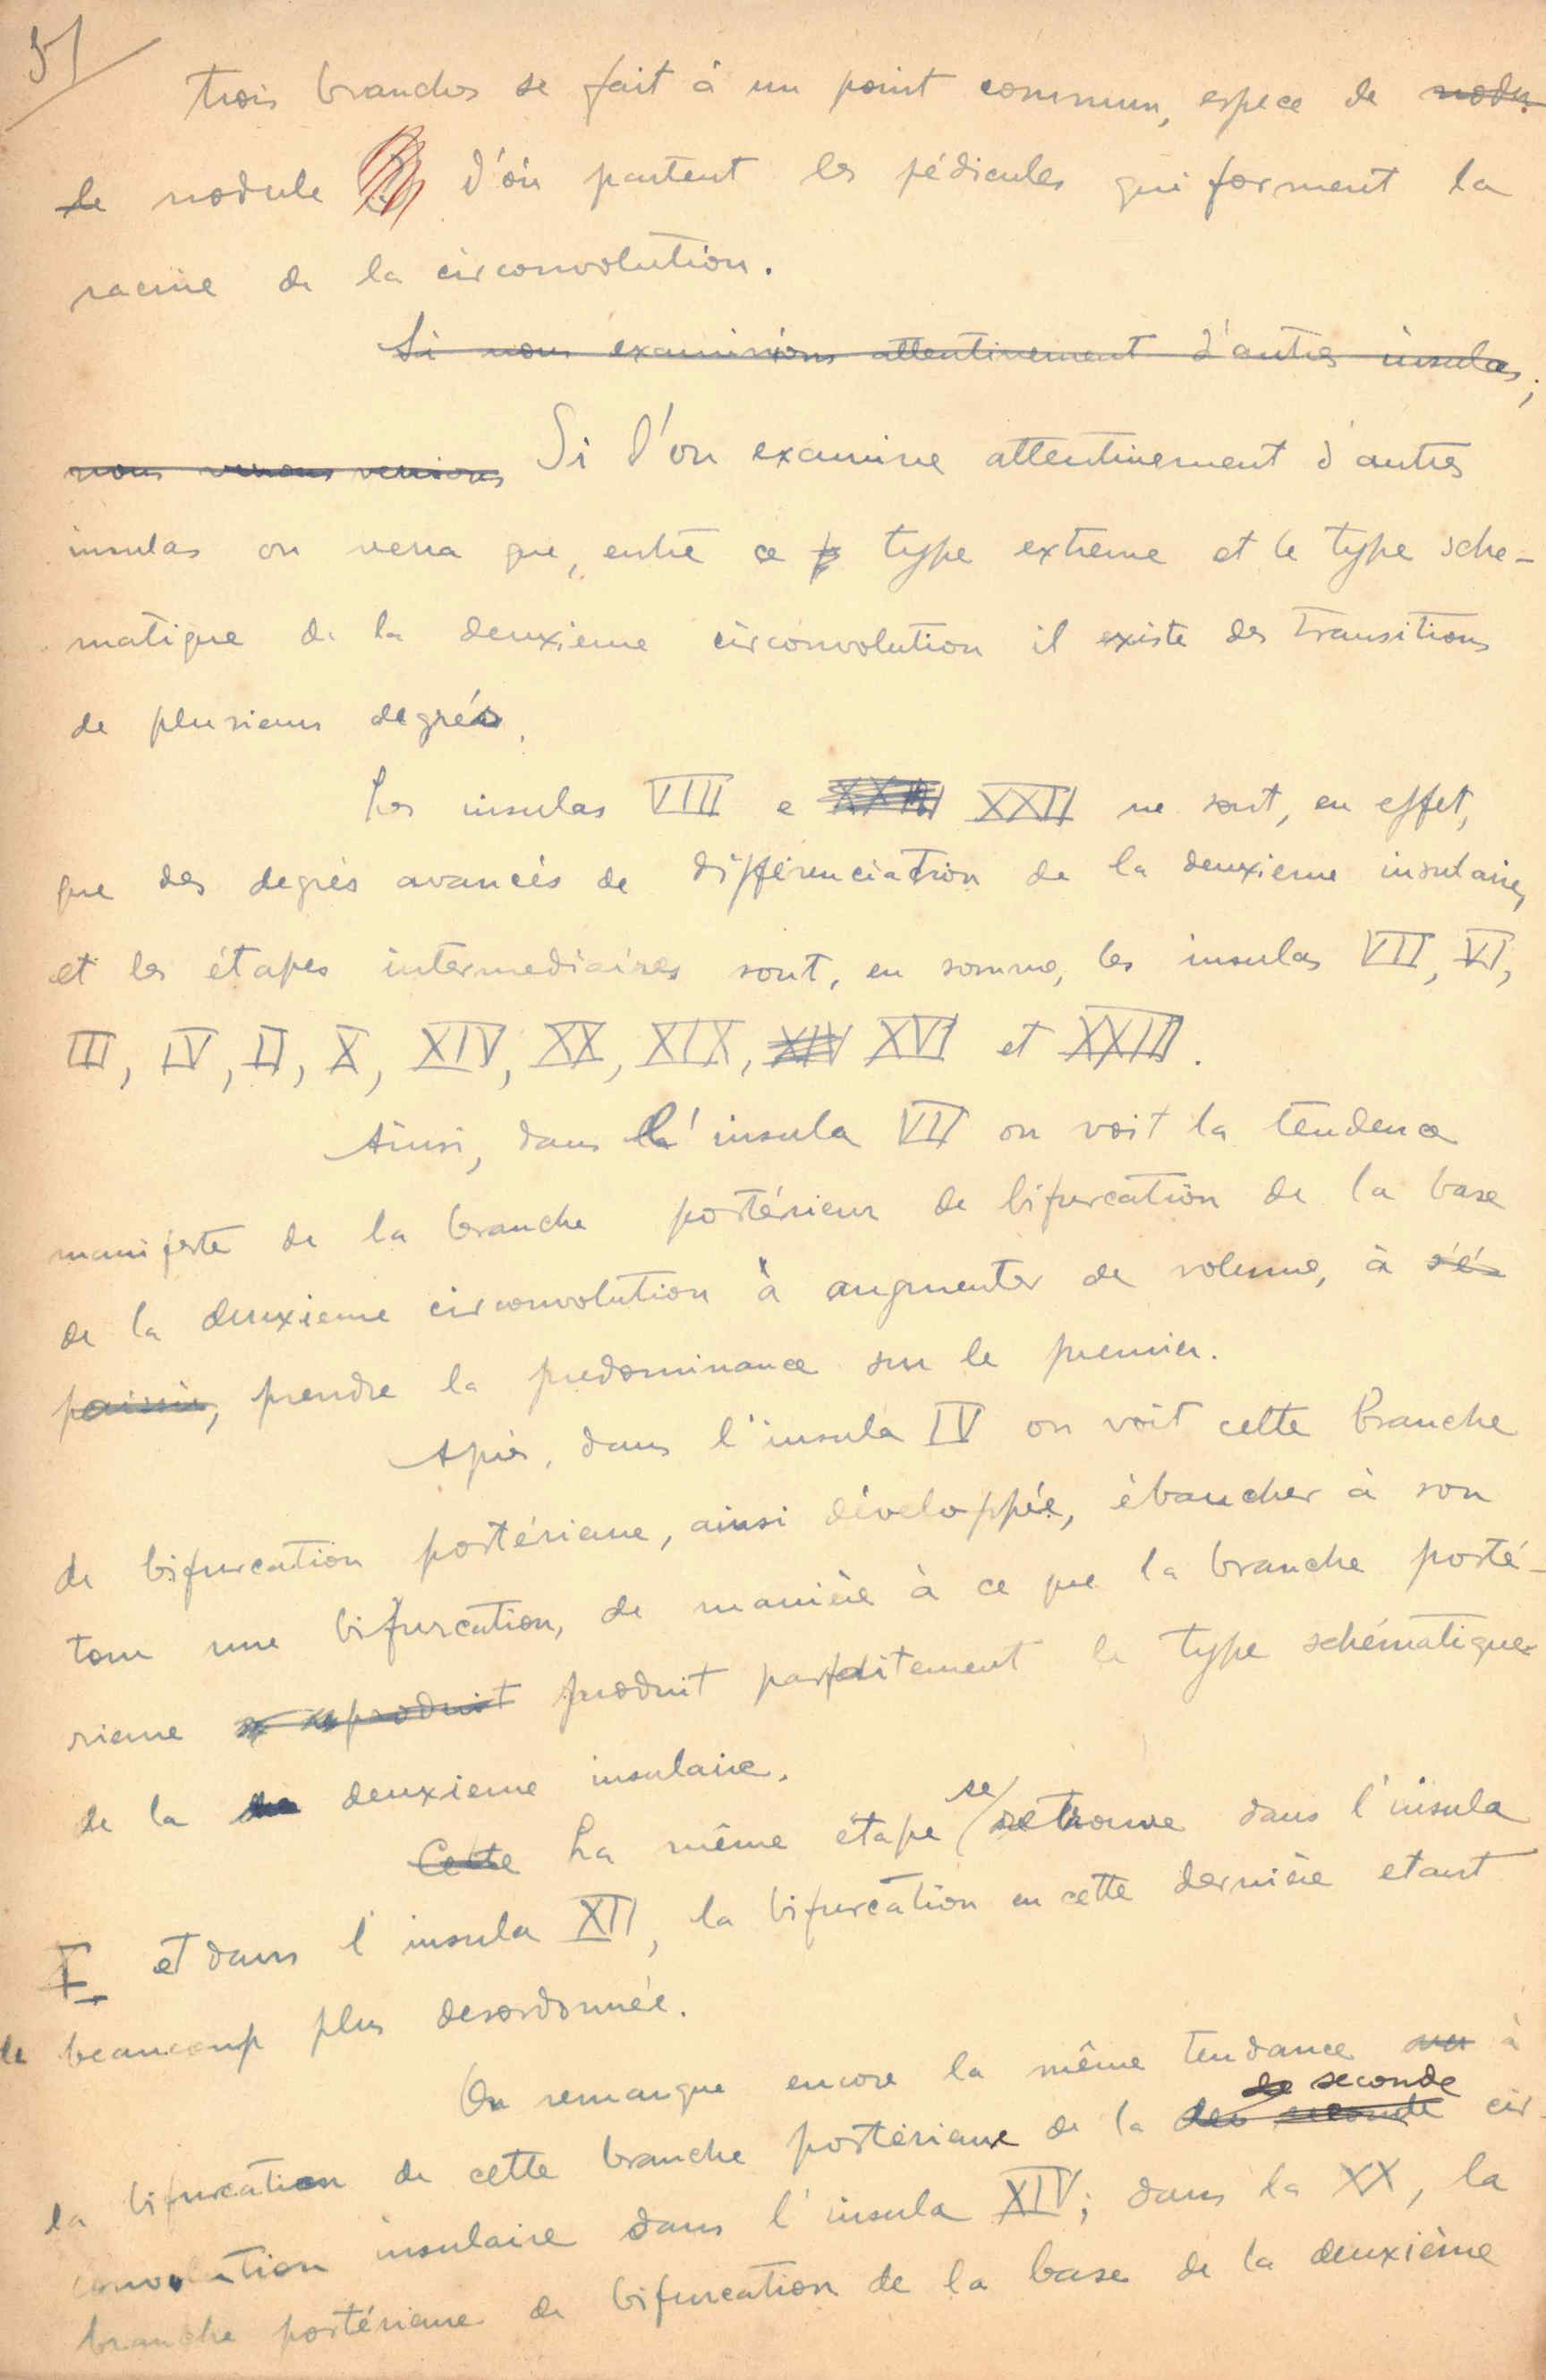 51
trois branches se fait à un point commun, espece de nodu
le nodule d'où partent les pédicules qui forment la
racine de la circonvolution.
Si nous examinions attentivement d'autres insulas,
nous verrons Si l'on examine attentivement d'autres
insulas on verra que, entre ce type extreme et le type sche-
matique de la deuxieme circonvolution il existe des transitions
de plusieurs degrés.
Les insulas VIII e XXII ne sont, en effet,
que des degrés avancés de différenciation de la deuxieme insulaire,
et les étapes intermediaires sont, en somme, les insulas VII, VI,
III, IV, II, X, XIV, XX, XIX, XIV XVI et XXIII.
Ainsi, dans l'insula VII on voit la tendence
manifeste de la branche postérieur de bifurcation de la base
de la deuxieme circonvolution à augmenter de volume, à s'é-
paissir, prendre la predominance sur le premier.
Après, dans l'insula IV on voit cette branche
de bifurcation postérieure, ainsi développée, ébaucher à son
tour une bifurcation, de manière à ce que la branche posté-
rieure reproduit produit parfaitement le type schématique
de la deuxieme insulaire.
Cette La même étape se retrouve dans l'insula
I et dans l'insula XII, la bifurcation en cette dernière etant
de beaucoup plus desordonnée.
On remarque encore la même tendance à
la bifurcation de cette branche postérieure de la seconde cir-
convolution insulaire dans l'insula XIV; dans la XX, la
branche postérieure de bifurcation de la base de la deuxième